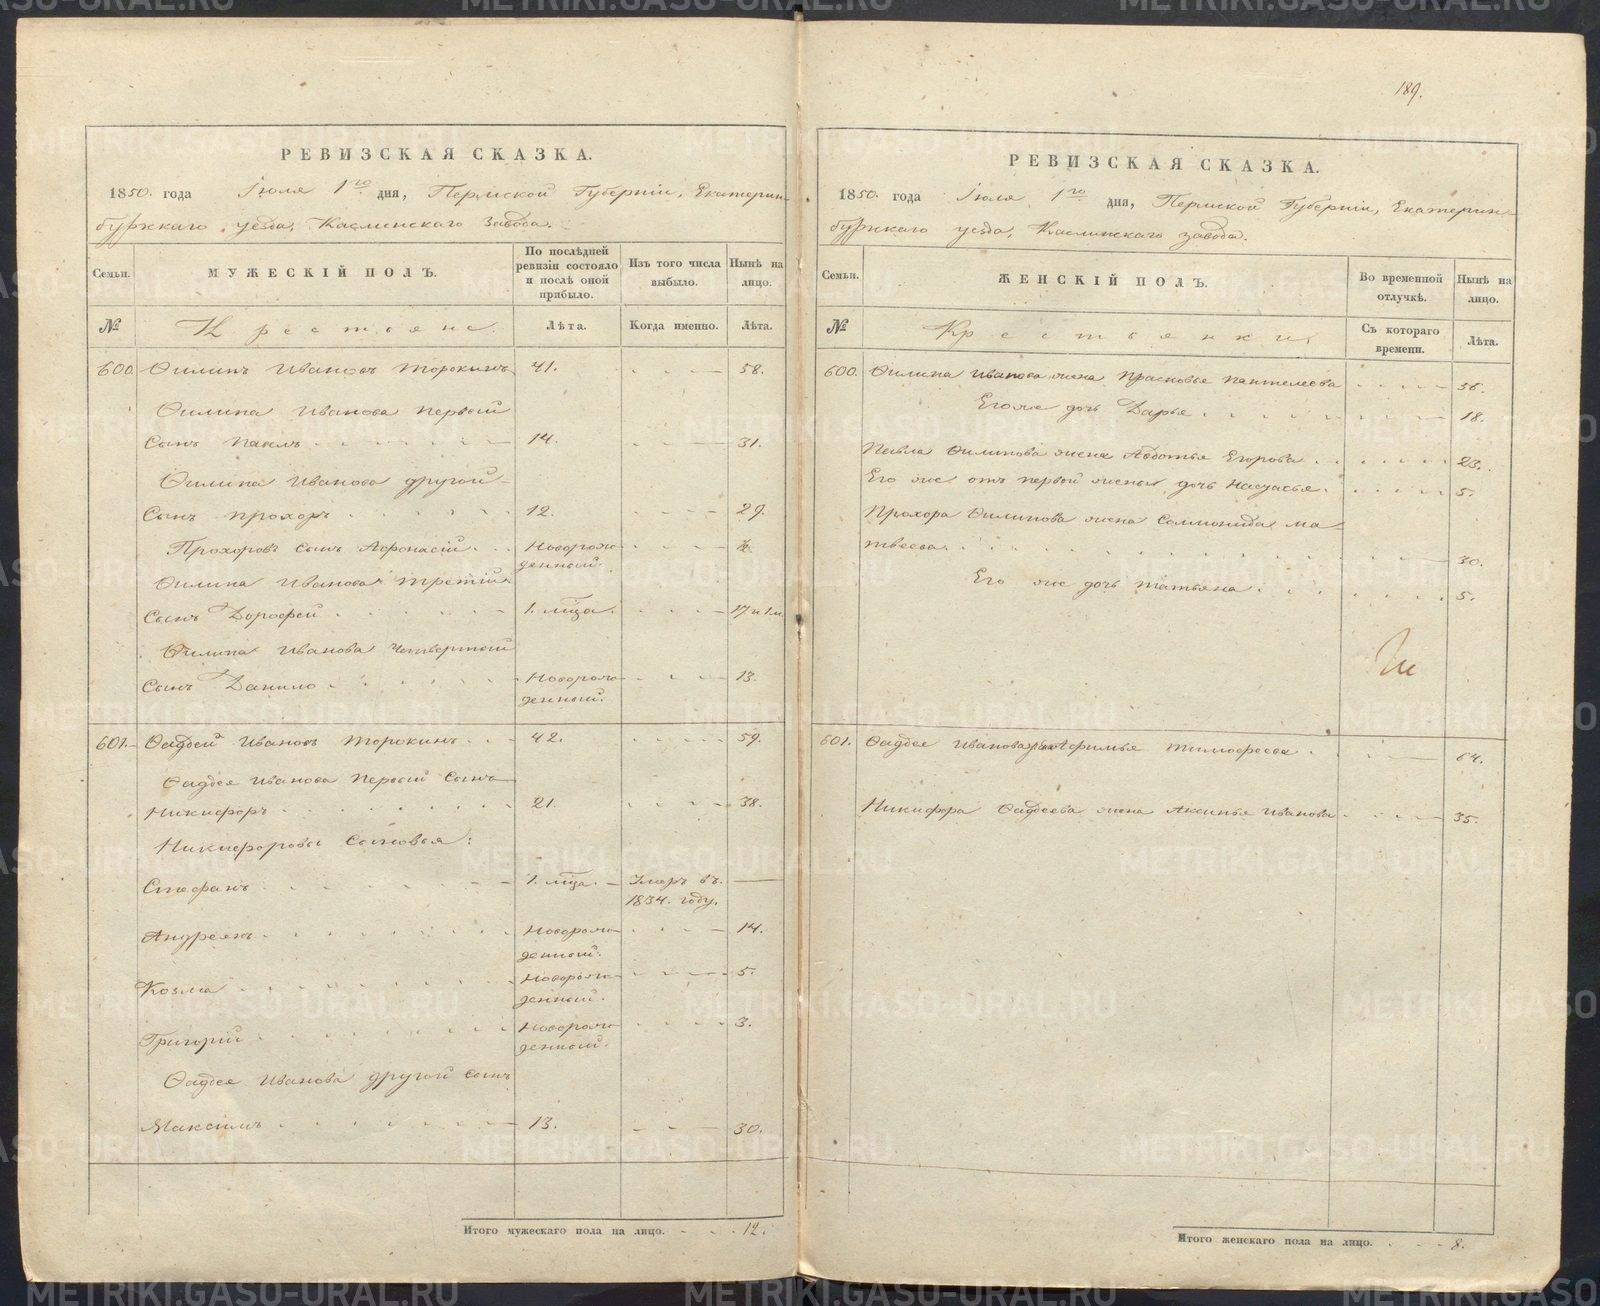 189.
РЕВИЗСКАЯ СКАЗКА.
1850. года Іюля 1го дня, Пермской Губерніи, Екатерин-
бургскаго уезда, Каслинскаго Завода.
Семьи.
МУЖЕСКІЙ ПОЛЪ.
По послѣдней ревизіи состояло и послѣ оной прибыло.
Изъ того числа выбыло.
Нынѣ на лицо.
№
Крестьяне.
Лѣта.
Когда именно.
Лѣта.
600. Филипъ Ивановъ Торокинъ 41. 58.
Филипа Иванова первый
Сынъ Павелъ 14. 31.
Филипа Иванова другой
Сынъ Прохоръ 12. 29.
Прохоровъ сынъ Афонасій Новорож-
денный.
Филипа Иванова третій
Сынъ Дорофей 1. мца. 17 и 1 м.
Филипа Иванова Четвертый
Сынъ Данило Новорож- 13.
денный.
601. Фадей Ивановъ Торокинъ 42. 59.
Фадея Иванова Первый Сынъ
Никифоръ 21. 38.
Никифоровы Сыновья:
Стефанъ 1. мца. Умеръ въ
1834. году.
Андреянъ Новорож- 14.
денный.
Козма Новорож- 5.
денный.
Григорій Новорож- 3.
денный.
Фадея Иванова другой сынъ
Максимъ 13. 30.
Итого мужескаго пола на лицо. 12.
РЕВИЗСКАЯ СКАЗКА.
1850. года Іюля 1го дня, Пермской Губерніи, Екатерин-
бургскаго уезда, Каслинскаго завода.
Семьи.
ЖЕНСКІЙ ПОЛЪ.
Во временной отлучкѣ.
Нынѣ на лицо.
№
Крестьянки.
Съ котораго времени.
Лѣта.
600. Филипа Иванова жена Прасковье Пантелеева 56.
Егоже дочь Дарье 18.
Павла Филипова жена Авдотье Егорова 23.
Его же отъ первой жены дочь Настасье 5.
Прохора Филипова жена Соломонида Ма
твеева. 30.
Его же дочь Татьяна 5.
601. Фадея Иванова жена Тимофеева 64.
Никифора Фадеева жена Аксинье Иванова 35.
Итого женскаго пола на лицо. 8.
METRIKI.GASO-URAL.RU